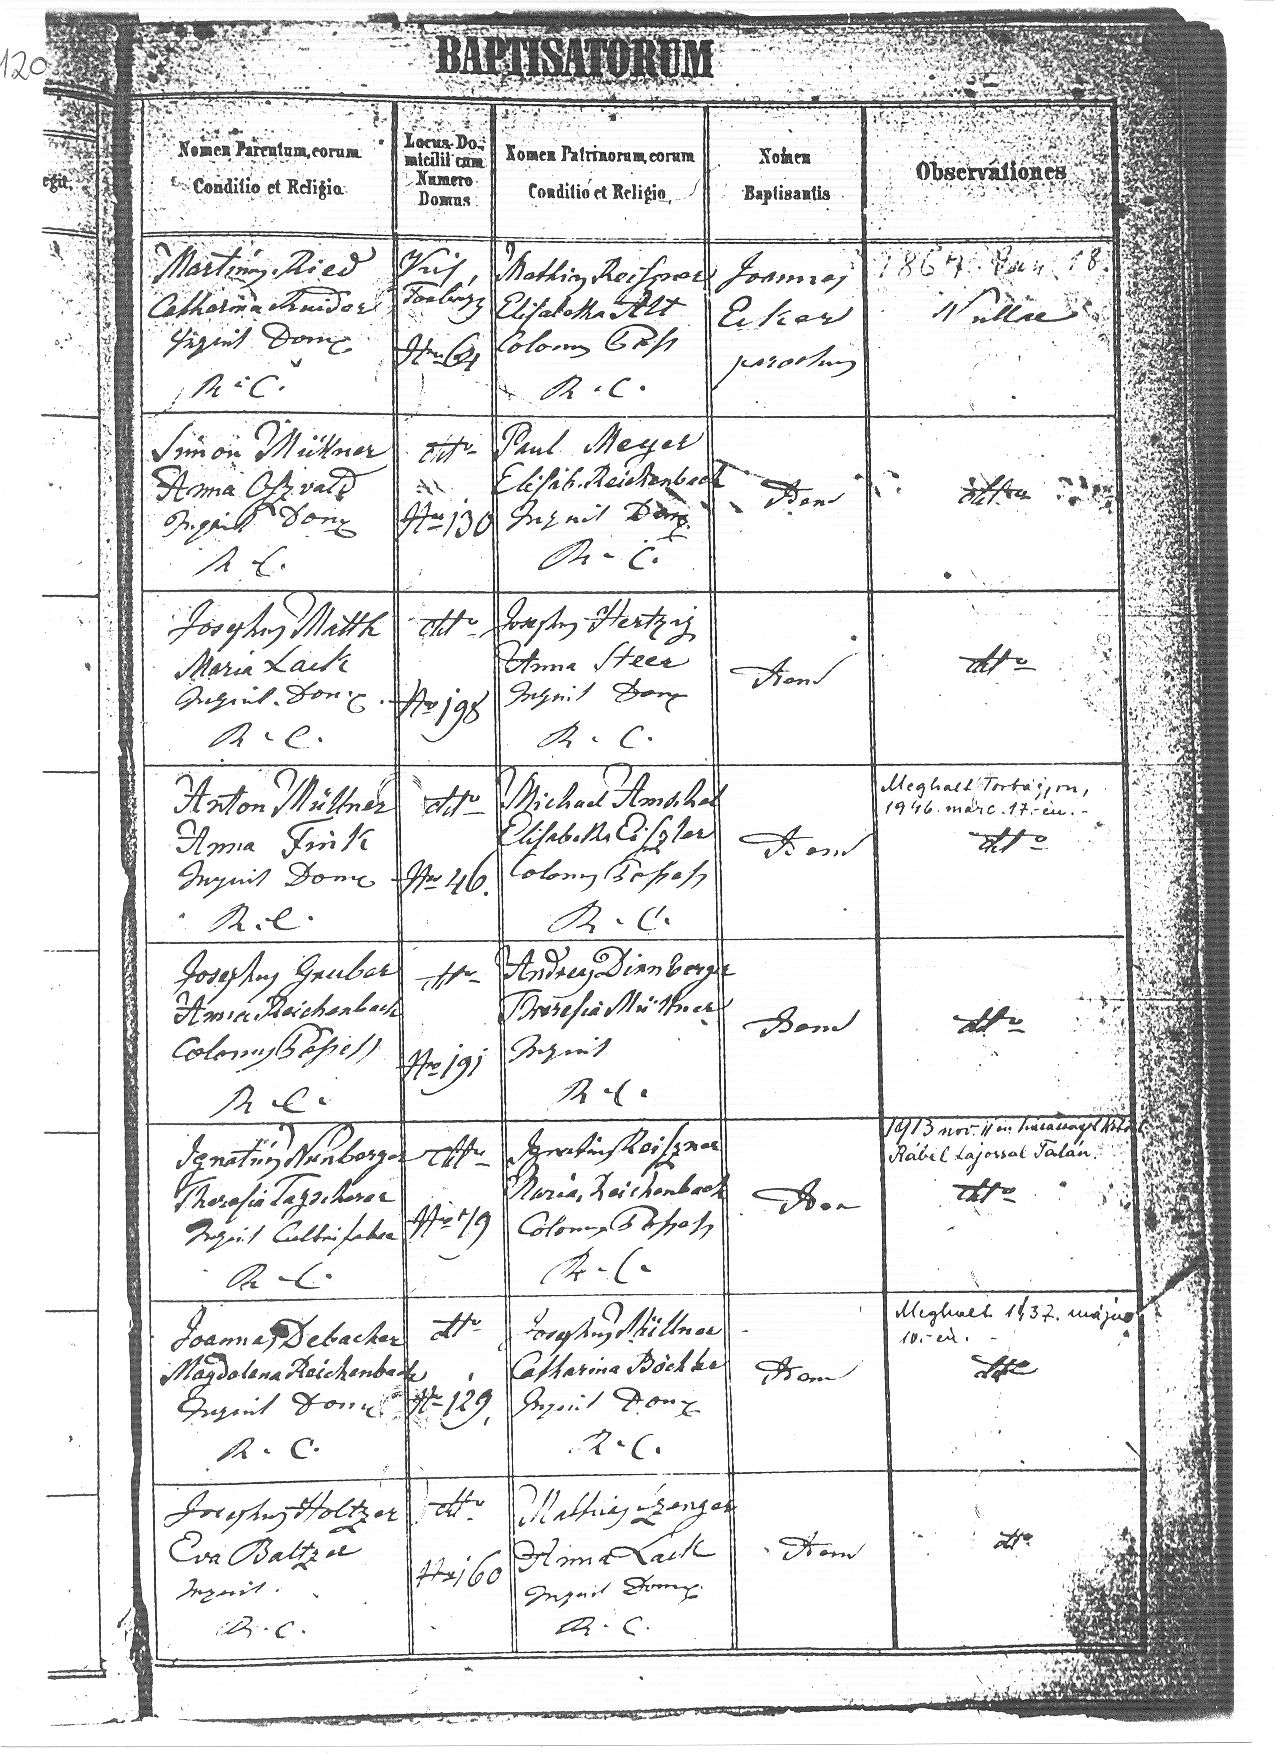 120
BAPTISATORUM
egit.
Nomen Parentum, eorum
Conditio et Religio
Locus Do-
micilii cum
Numero
Domus
Nomen Patrinorum, eorum
Conditio et Religio
Nomen
Baptisantis
Observationes
Martinus Ried
Catharina
Inquil Dom
R. C.
Nro 64
Mathias Reiszner
Elisabetha Alt
Colonus
R. C.
Joannes
Eiker
parochus
1867. 18.
Nullae
Simon Müllner
Anna Oszvald
Inquil Dom
R. C.
dtto
Nro 130
Paul Meyer
Elisab. Reichenbach
Inquil Dom
R. C.
Idem
dtto
Josephus Matth
Maria Lack
Inquil. Dom
R. C.
dtto
Nro 198
Josephus Hertzig
Anna Steer
Inquil Dom
R. C.
Idem
dtto
Anton Müllner
Anna Fink
Inquil Dom
R. C.
dtto
Nro 46.
Michael Amschel
Elisabetha Eiszler
Colonus Possess
R. C.
Idem
Meghalt Torbágyon,
1946. márc. 17.-én.-
dtto
Josephus Gruber
Anna Reichenbach
Colonus Possess
R. C.
dtto
Nro 191
Andreas Dirnberger
Theresia Müllner
Inquil
R. C.
Idem
dtto
Ignatius Nirnberger
Theresia Tagscherer
Inquil
R. C.
dtto
Nro 79
Ignatius Reiszner
Maria Reichenbach
Colonus Possess
R. C.
Idem
1913 nov. 11 én
Rábel Lajossal
dtto
Joannes Debacher
Magdalena Reichenbach
Inquil Dom
R. C.
dtto
Nro 129.
Josephus Müllner
Catharina Böchler
Inquil Dom
R. C.
Idem
Meghalt 1937. május
10.-én. -
dtto
Josephus Holtzer
Eva Baltzer
Inquil.
R. C.
dtto
Nro 160
Mathias Zenger
Anna Lack
Inquil Dom
R. C.
Idem
dtto